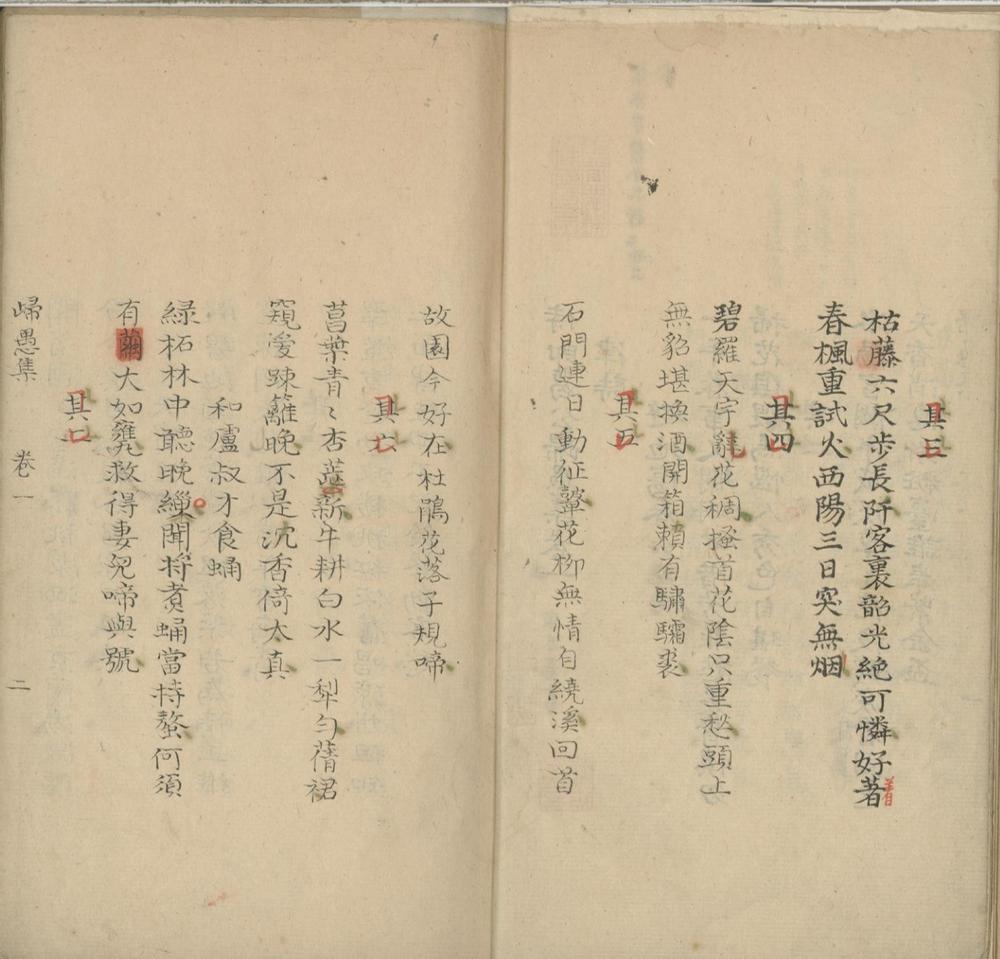 其三
枯藤六尺步長阡客裏韶光絶可憐好著
着
春楓重試火西陽三日突無烟
其四
碧羅天宇辭花稠搔首花陰只重愁頭上
無貂堪換酒開箱頼有驌驦裘
其五
石門連日動征鼙花柳無情自繞溪回首
故園今好在杜鵑花落子規啼
其六
菖葉青〻杏蘂新牛耕白水一犁勻蒨裙
窺瀅踈籬晚不是沉香倚太真
和盧叔才食蛹
緑柘林中聽晚繅聞將煮蛹當持螯何須
有繭大如甕救得妻兒啼與號
其二
歸愚集 卷一 二